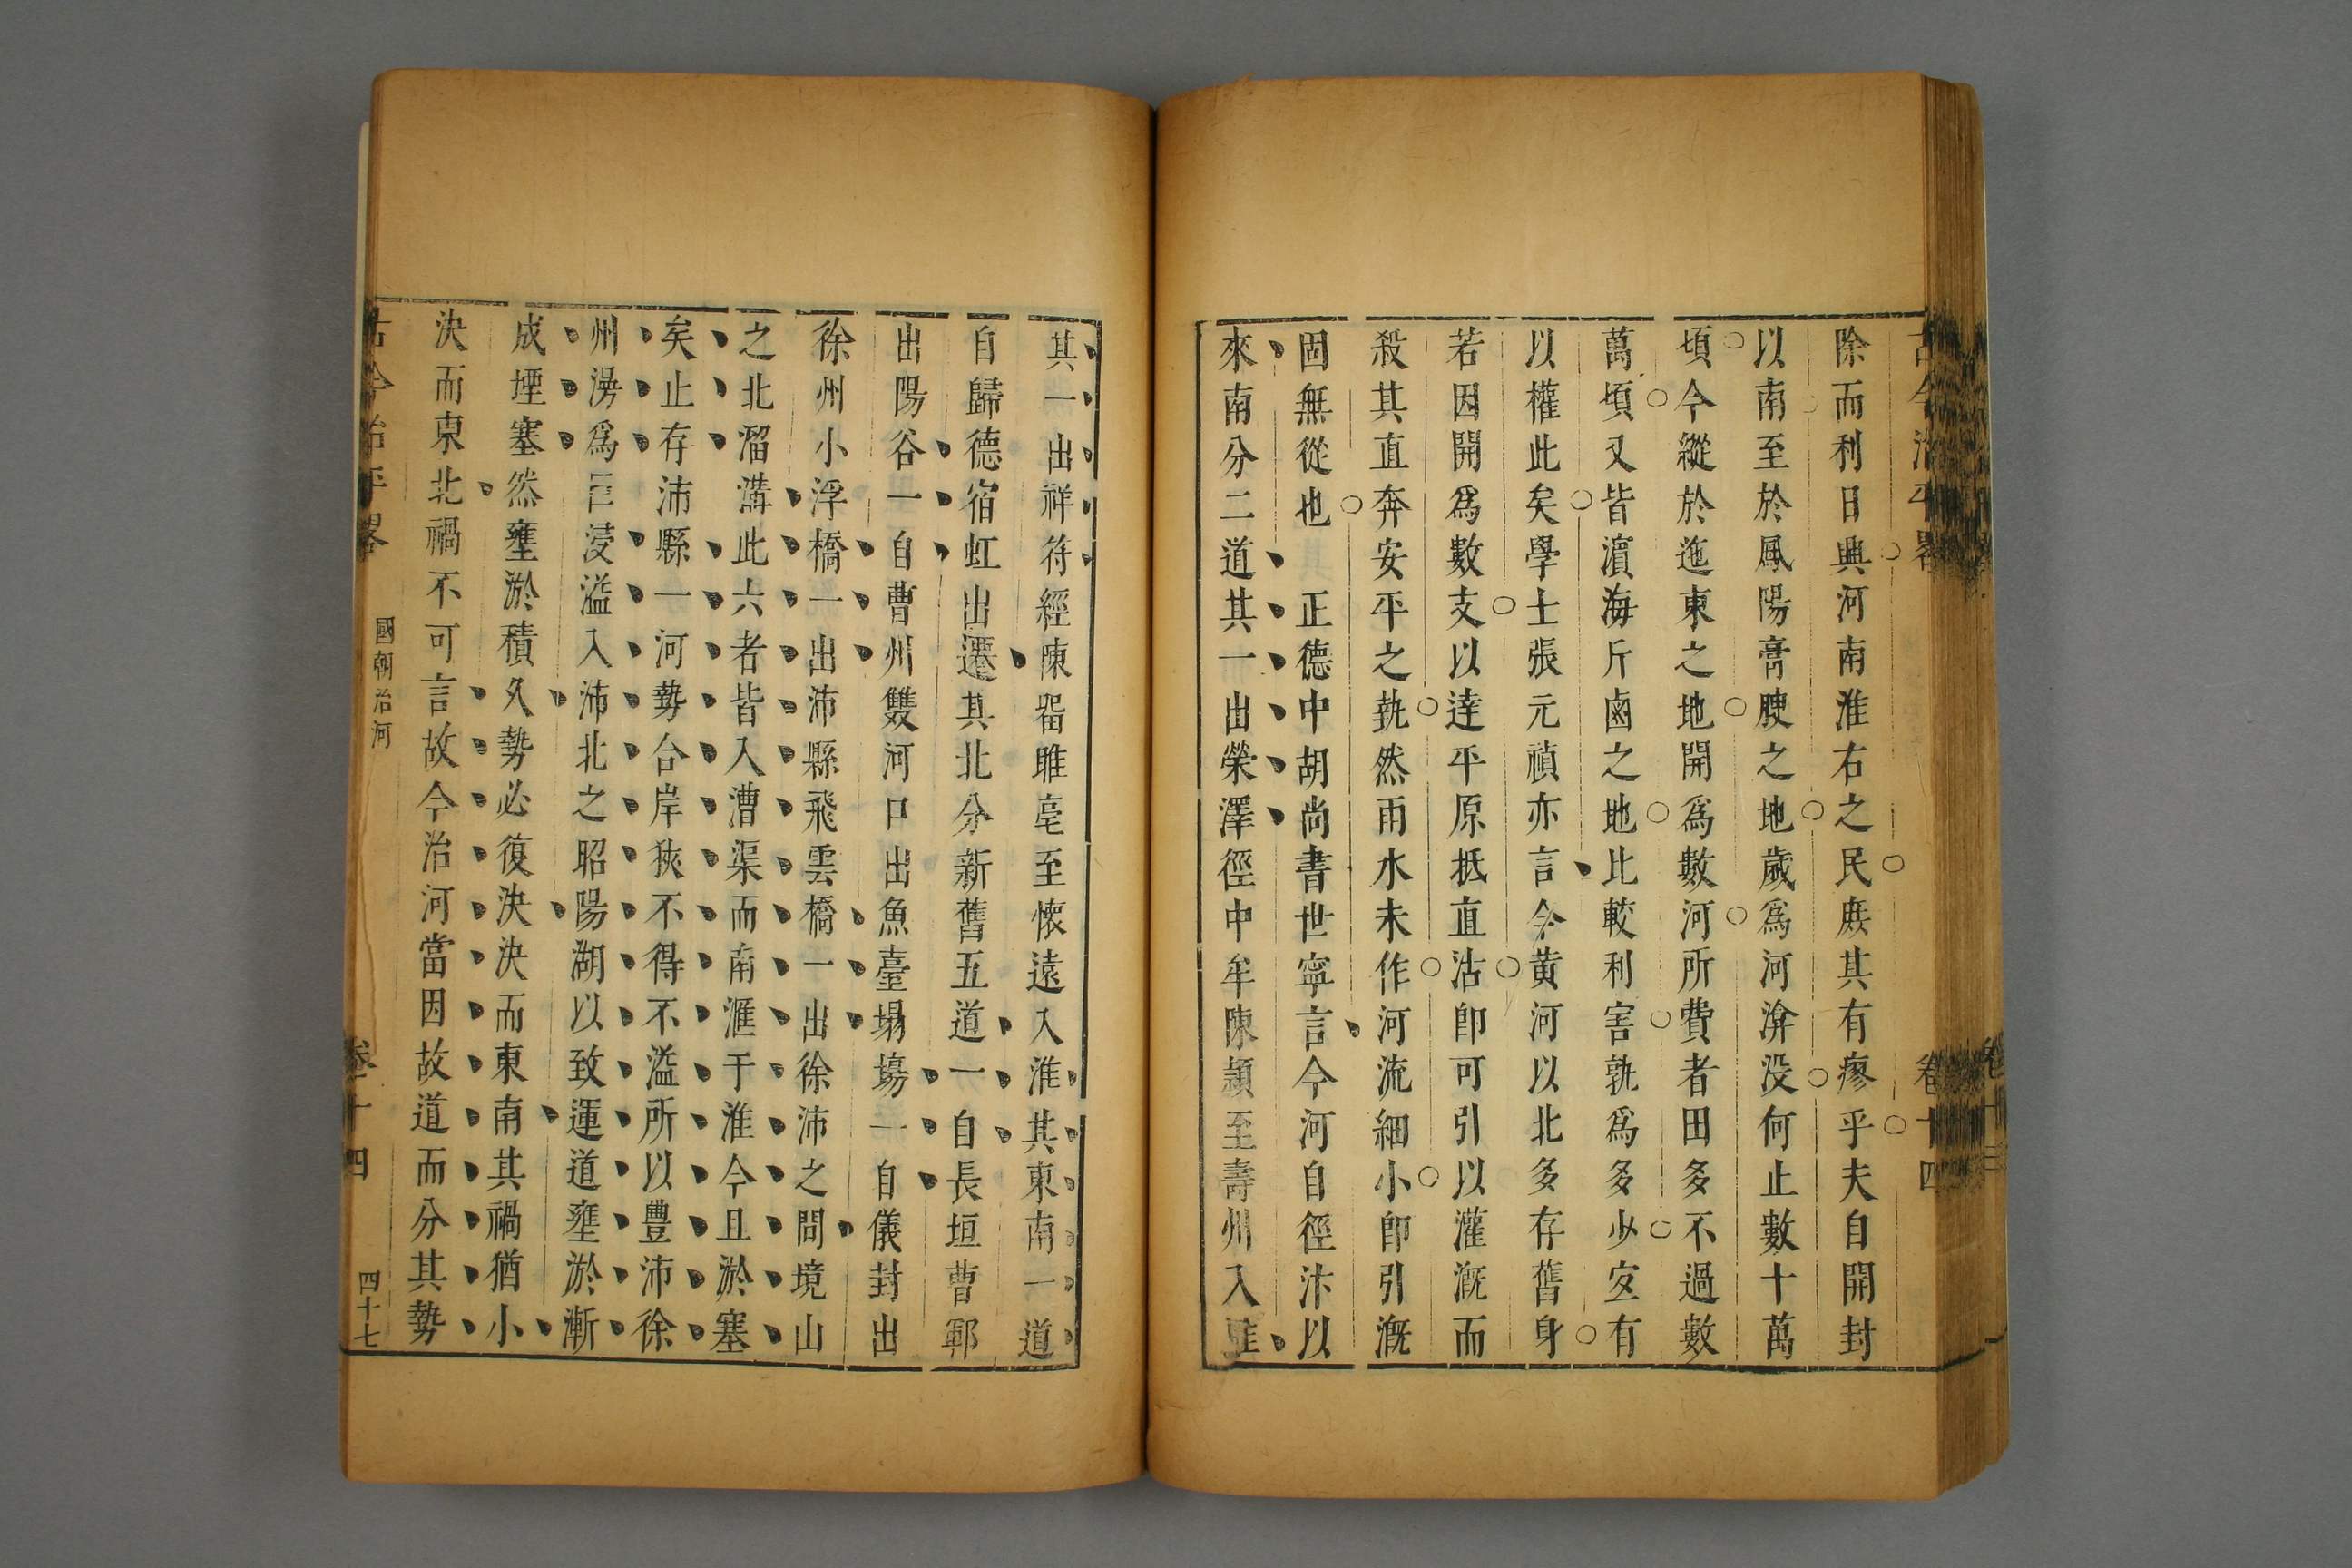 古今治平畧 卷十四
除而利日興河南淮右之民庶其有瘳乎夫自開封
以南至於鳳陽膏腴之地歲為河渰没何止數十萬
頃今縱於迤東之地開為數河所費者田多不過數
萬頃又皆濵海斥鹵之地比較利害孰為多少宐有
以權此矣學士張元禎亦言今黄河以北多存舊身
若因開為數支以達平原抵直沽卽可引以灌溉而
殺其直奔安平之埶然雨水未作河流細小卽引溉
固無從也 正德中胡尚書世寧言今河自徑汴以
來南分二道其一出滎澤徑中牟陳潁至壽州入淮
其一出祥符經陳畱睢亳至懷遠入淮其東南一道
自歸德宿虹出其北分新舊五道一自長垣曹鄆
出陽谷一自曹州雙河口出魚臺塌塲一自儀封出
徐州小浮橋一出沛縣飛雲橋一出徐沛之間境山
之北溜溝此六者皆入漕渠而南滙于淮今且淤塞
矣止存沛縣一河勢合岸狹不得不溢所以豐沛徐
州漫為巨浸溢入沛北之昭陽湖以致運道壅淤漸
成堙塞然壅淤積久勢必復決決而東南其禍猶小
決而東北禍不可言故今治河當因故道而分其勢
古今治平畧 國朝治河 卷十四 四十七